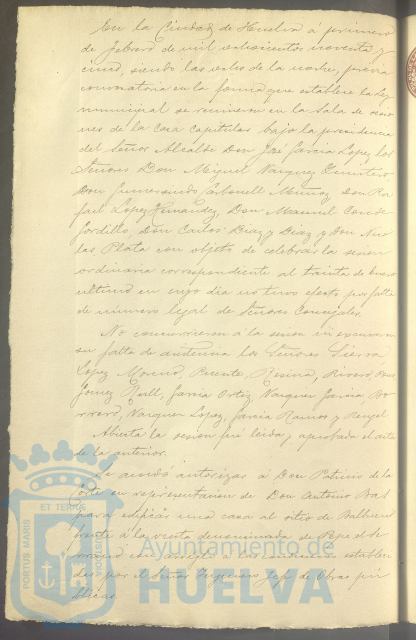 En la Ciudad de Huelva á primero
de febrero de mil ochocientos noventa y
cinco, siendo las ocho de la noche, previa
convocatoria en la forma que establece la ley
municipal se reunieron en la Sala de sesio
nes de la Casa capitular bajo la presidencia
del Señor Alcalde Don José Garcia Lopez los
Señores Don Miguel Vazquez
Don Gumersindo Carbonell Muñoz Don Ra
fael Lopez Hernandez, Don Manuel Conde
Gordillo, Don Carlos Diaz y Diaz y Don Nico
las Plata con objeto de celebrar la sesion
ordinaria correspondiente al treinta de Enero
ultimo en cuyo dia no tuvo efecto por falta
de numero legal de Señores Concejales.
No concurrieron á la sesion ni escusaron
su falta de asistencia los Señores Sierra
Lopez Moreno, Puente, Resina, Rivero,
Gomez Rull, Garcia Ortiz, Vazquez Garcia, Bo
rrero, Vazquez Lopez, Garcia Ramos y Rengel
Abierta la sesion fué leida y aprobada el acta
de la anterior.
Se acordó autorizar á Don Patricio de la
Corte en representacion de Don Antonio
para edificar una casa al sitio de
frente á la venta denominada de Pepe el
con arreglo á las
por el Señor Ingeniero Gefe de Obras pú
blicas.
PORTUS MARIS
ET TERRAE
Ayuntamiento de
HUELVA